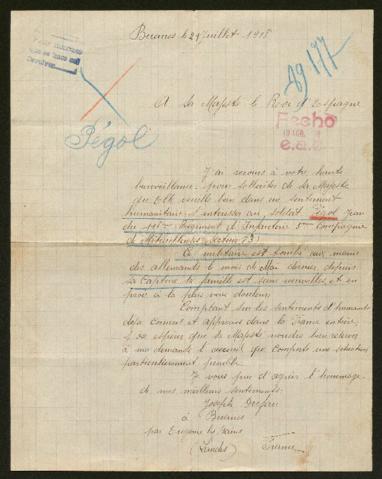 Buanes le 29 juillet 1918
A Sa Majesté le Roi d'Espagne
49177
Fecho
Pégol
J'ai recours à votre haute
bienveillance pour solliciter de Sa Majesté
qu'Elle veuille bien dans un sentiment
humanitaire s'intéresser au soldat Pégol Jean
du Régiment d'Infanterie Compagnie
de Mitrailleuses
Ce militaire est tombé aux mains
des allemands le mois de Mai dernier, depuis
sa capture la famille est sans nouvelles, et en
proie à la plus vive douleur.
Comptant sur les sentiments d'humanité
déjà connus et appréciés dans la France entière
j'ose espérer que Sa Majesté voudra bien réserver
à ma demande l'accueil que comporte une situation
particulièrement pénible.
Je vous prie d'agréer l'hommage
de mes meilleurs sentiments.
Joseph
à Buanes
par Eugénie les Bains
(Landes) France